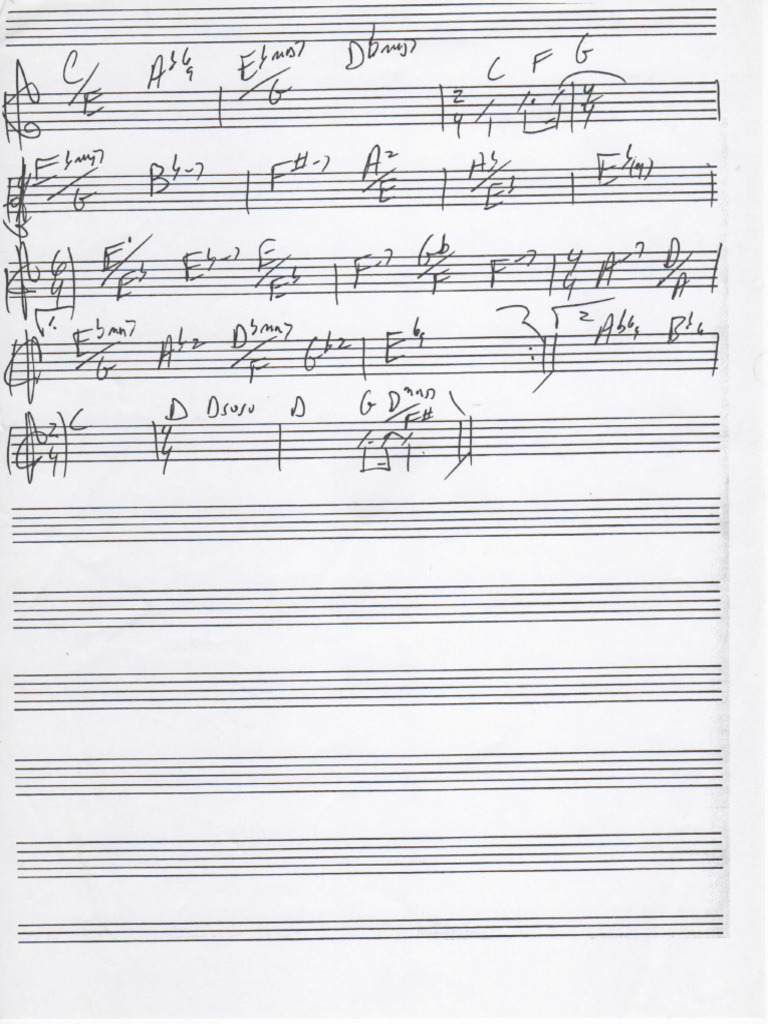 C/E A♭6/9 E♭maj7/G D♭maj7 2/4 C F G 4/4
E♭maj7/G B♭-7 F#-7 A2/E A♭/E♭ E♭(9)
6/4 E/E♭ E♭-7 E/E♭ F-7 G♭/F F-7 4/4 A-7 D/A
1. E♭maj7/G A♭2 D♭maj7/F G♭2 E♭6/9 2 A♭6/9 B♭6
2/4 C 4/4 D Dsus D G Dmaj7/F#